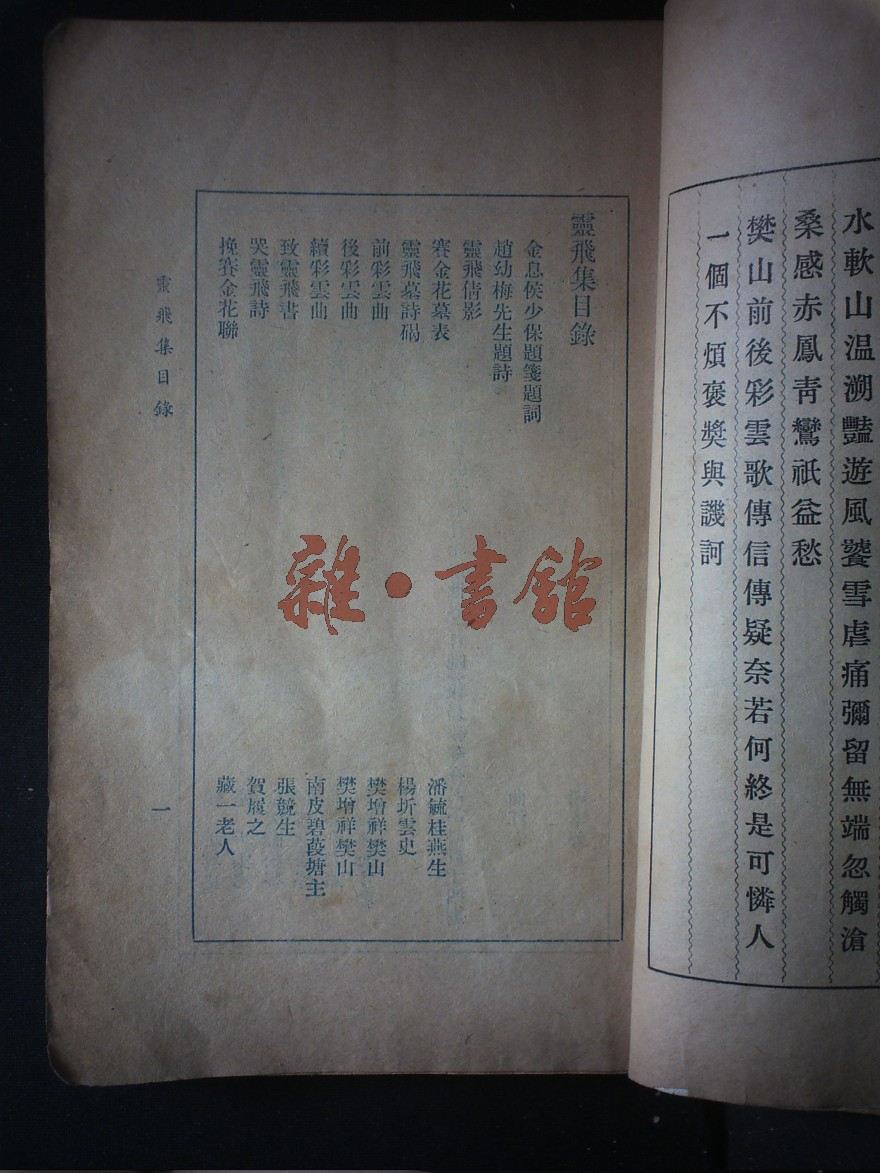 水軟山温溯豔遊風饕雪虐痛彌留無端忽觸滄
桑感赤鳳青鸞祇益愁
樊山前後彩雲歌傳信傳疑奈若何終是可憐人
一個不煩褒獎與譏訶
靈飛集目錄
金息侯少保題箋題詞
趙幼梅先生題詩
靈飛倩影
賽金花墓表 潘毓桂燕生
靈飛墓詩碣 楊圻雲史
前彩雲曲 樊增祥樊山
後彩雲曲 樊增祥樊山
續彩雲曲 南皮碧葭塘主
致靈飛書 張競生
哭靈飛詩 賀履之
挽賽金花聯 藏一老人
靈飛集目錄
一
雜·書館